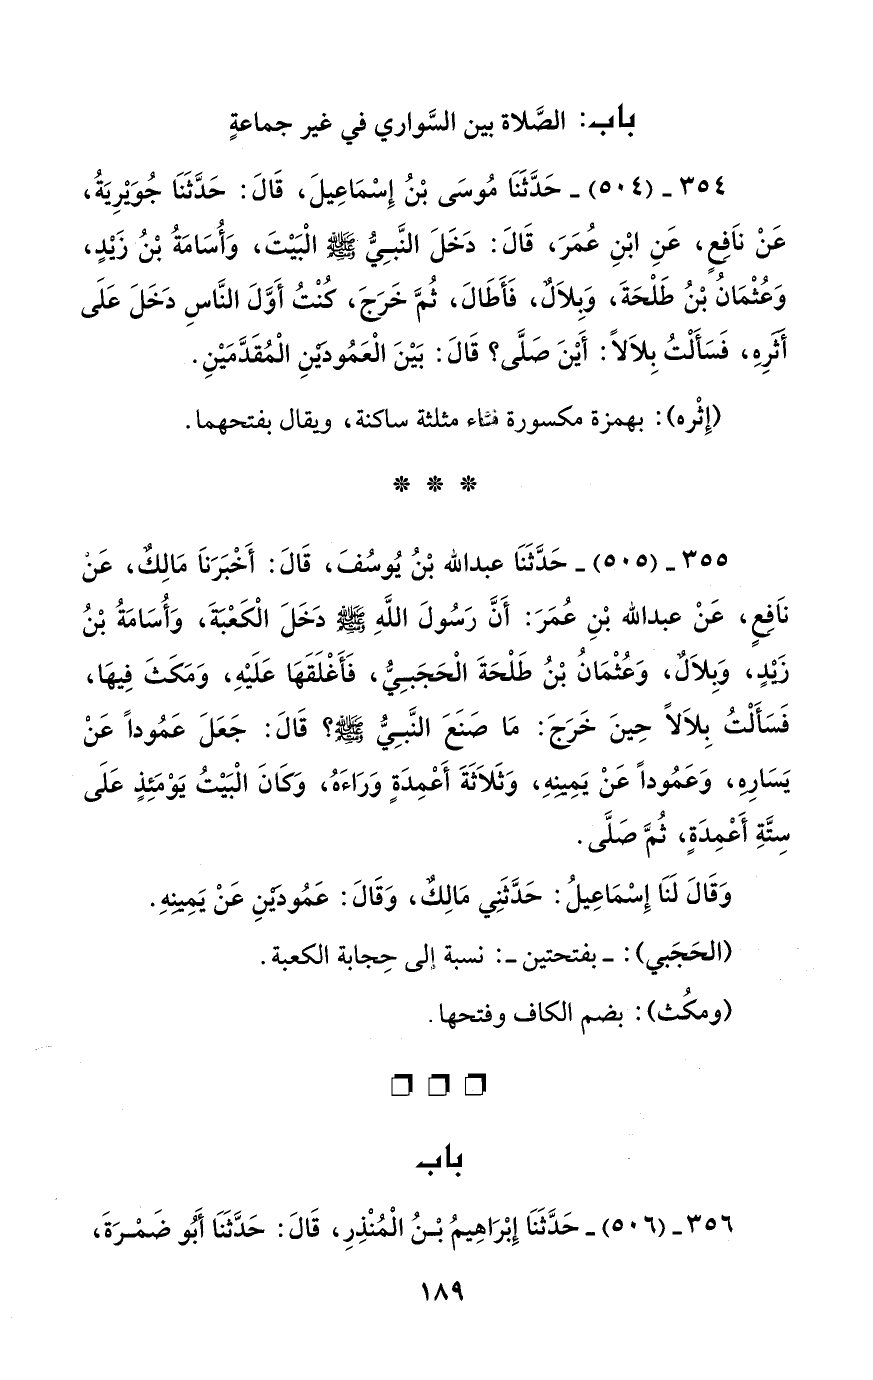 باب: الصَّلاة بين السَّواري في غير جماعةٍ
٣٥٤ ـ (٥٠٤) ـ حَدَّثَنَا مُوسَى بْنُ إِسْمَاعِيلَ، قَالَ: حَدَّثَنَا جُوَيْرِيَةُ،
عَنْ نَافِعٍ، عَنِ ابْنِ عُمَرَ، قَالَ: دَخَلَ النَّبِيُّ ﷺ الْبَيْتَ، وَأُسَامَةُ بْنُ زَيْدٍ،
وَعُثْمَانُ بْنُ طَلْحَةَ، وَبِلاَلٌ، فَأَطَالَ، ثُمَّ خَرَجَ، كُنْتُ أَوَّلَ النَّاسِ دَخَلَ عَلَى
أَثَرِهِ، فَسَأَلْتُ بِلاَلاً: أَيْنَ صَلَّى؟ قَالَ: بَيْنَ الْعَمُودَيْنِ الْمُقَدَّمَيْنِ.
(إِثْره): بهمزة مكسورة فثاء مثلثة ساكنة، ويقال بفتحهما.
* * *
٣٥٥ ـ (٥٠٥) ـ حَدَّثَنَا عبدالله بْنُ يُوسُفَ، قَالَ: أَخْبَرَنَا مَالِكٌ، عَنْ
نَافِعٍ، عَنْ عبدالله بْنِ عُمَرَ: أَنَّ رَسُولَ اللَّهِ ﷺ دَخَلَ الْكَعْبَةَ، وَأُسَامَةُ بْنُ
زَيْدٍ، وَبِلاَلٌ، وَعُثْمَانُ بْنُ طَلْحَةَ الْحَجَبِيُّ، فَأَغْلَقَهَا عَلَيْهِ، وَمَكَثَ فِيهَا،
فَسَأَلْتُ بِلاَلاً حِينَ خَرَجَ: مَا صَنَعَ النَّبِيُّ ﷺ؟ قَالَ: جَعَلَ عَمُوداً عَنْ
يَسَارِهِ، وَعَمُوداً عَنْ يَمِينِهِ، وَثَلاَثَةَ أَعْمِدَةٍ وَرَاءَهُ، وَكَانَ الْبَيْتُ يَوْمَئِذٍ عَلَى
سِتَّةِ أَعْمِدَةٍ، ثُمَّ صَلَّى.
وَقَالَ لَنَا إِسْمَاعِيلُ: حَدَّثَنِي مَالِكٌ، وَقَالَ: عَمُودَيْنِ عَنْ يَمِينِهِ.
(الحَجَبي): ـ بفتحتين ـ: نسبة إلى حِجابة الكعبة.
(ومكُث): بضم الكاف وفتحها.
❒ ❒ ❒
باب
٣٥٦ ـ (٥٠٦) ـ حَدَّثَنَا إِبْرَاهِيمُ بْنُ الْمُنْذِرِ، قَالَ: حَدَّثَنَا أَبُو ضَمْرَةَ،
١٨٩